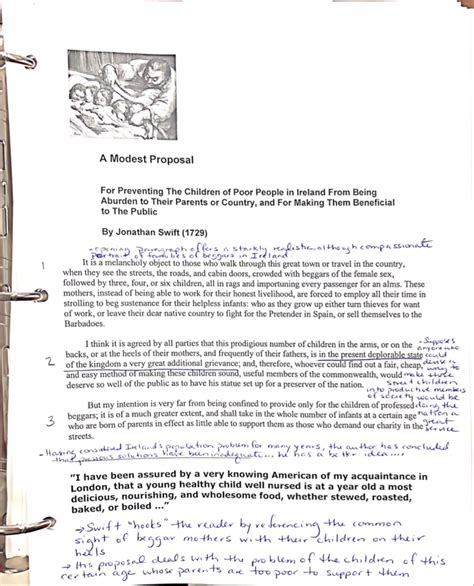 A Modest Proposal
For Preventing The Children of Poor People in Ireland From Being
Aburden to Their Parents or Country, and For Making Them Beneficial
to The Public
By Jonathan Swift (1729)
- opening paragraph offers a starkly realistic, although compassionate
portrait of families of beggars in Ireland.
1
It is a melancholy object to those who walk through this great town or travel in the country,
when they see the streets, the roads, and cabin doors, crowded with beggars of the female sex,
followed by three, four, or six children, all in rags and importuning every passenger for an alms. These
mothers, instead of being able to work for their honest livelihood, are forced to employ all their time in
strolling to beg sustenance for their helpless infants: who as they grow up either turn thieves for want
of work, or leave their dear native country to fight for the Pretender in Spain, or sell themselves to the
Barbadoes.
2
I think it is agreed by all parties that this prodigious number of children in the arms, or on the
backs, or at the heels of their mothers, and frequently of their fathers, is in the present deplorable state
of the kingdom a very great additional grievance; and, therefore, whoever could find out a fair, cheap,
and easy method of making these children sound, useful members of the commonwealth, would
deserve so well of the public as to have his statue set up for a preserver of the nation.
- Supposes
anyone who
could
way to
make these
street children
into productive members
of society would be
doing the
nation a
great
service
3
But my intention is very far from being confined to provide only for the children of professed
beggars; it is of a much greater extent, and shall take in the whole number of infants at a certain age
who are born of parents in effect as little able to support them as those who demand our charity in the
streets.
- Having considered Ireland's population problem for many years, the author has concluded
that previous solutions have been inadequate... he has a better idea....
"I have been assured by a very knowing American of my acquaintance in
London, that a young healthy child well nursed is at a year old a most
delicious, nourishing, and wholesome food, whether stewed, roasted,
baked, or boiled ..."
→ Swift "hooks" the reader by referencing the common
sight of beggar mothers with their children on their
heels
→ His proposal deals with the problem of the children of this
certain age whose parents are too poor to support them